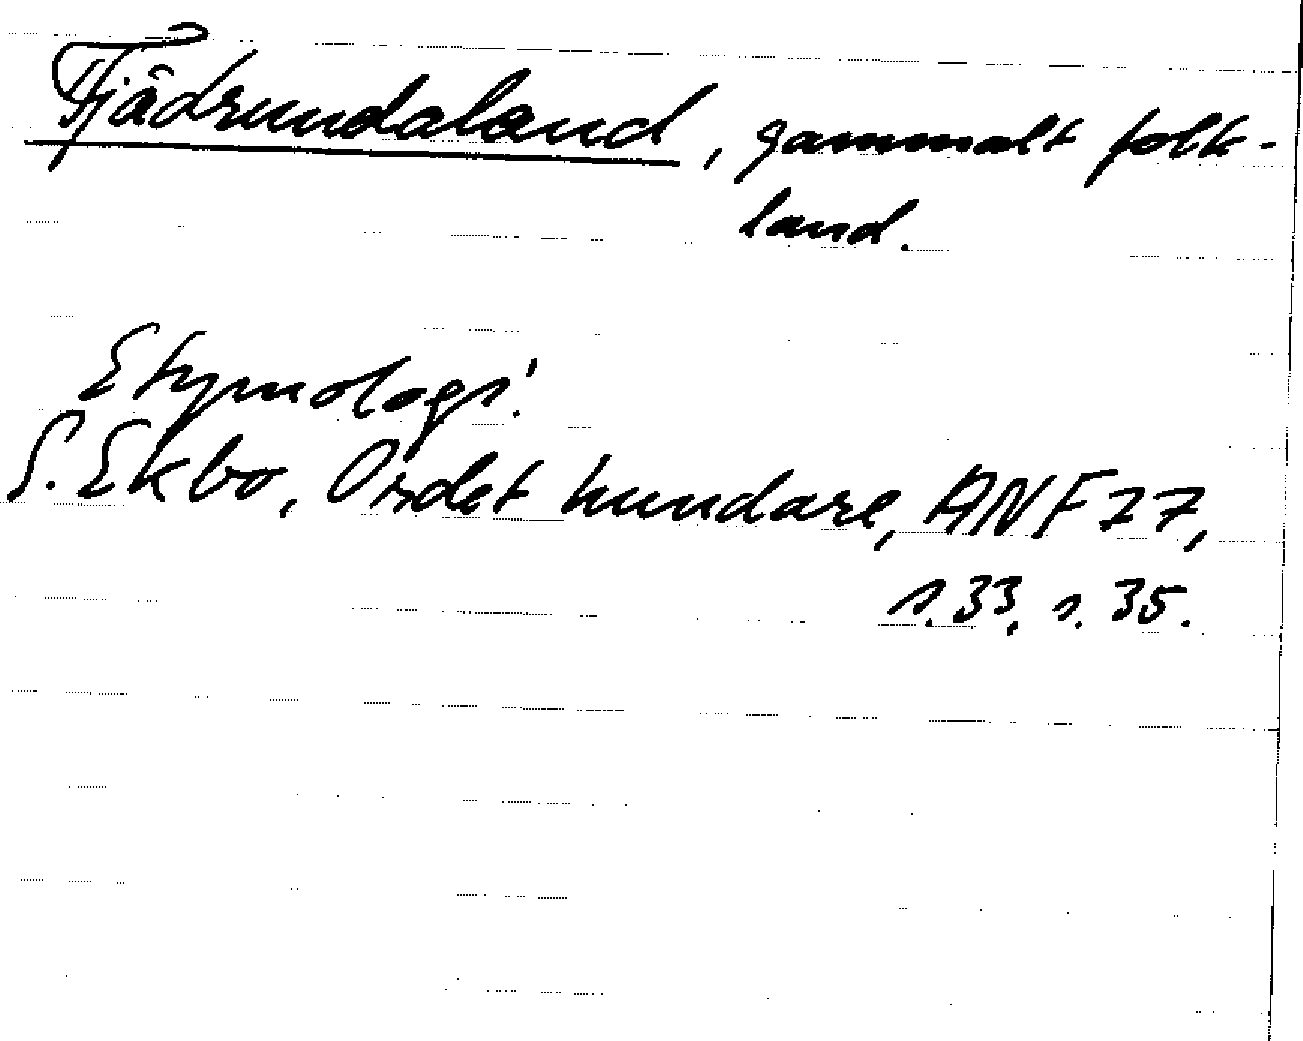 Fjädrundaland, gammalt folk-
land.
Etymologi!
S. Ekbo, Ordet hundare, ANF 77,
s. 33, s. 35.